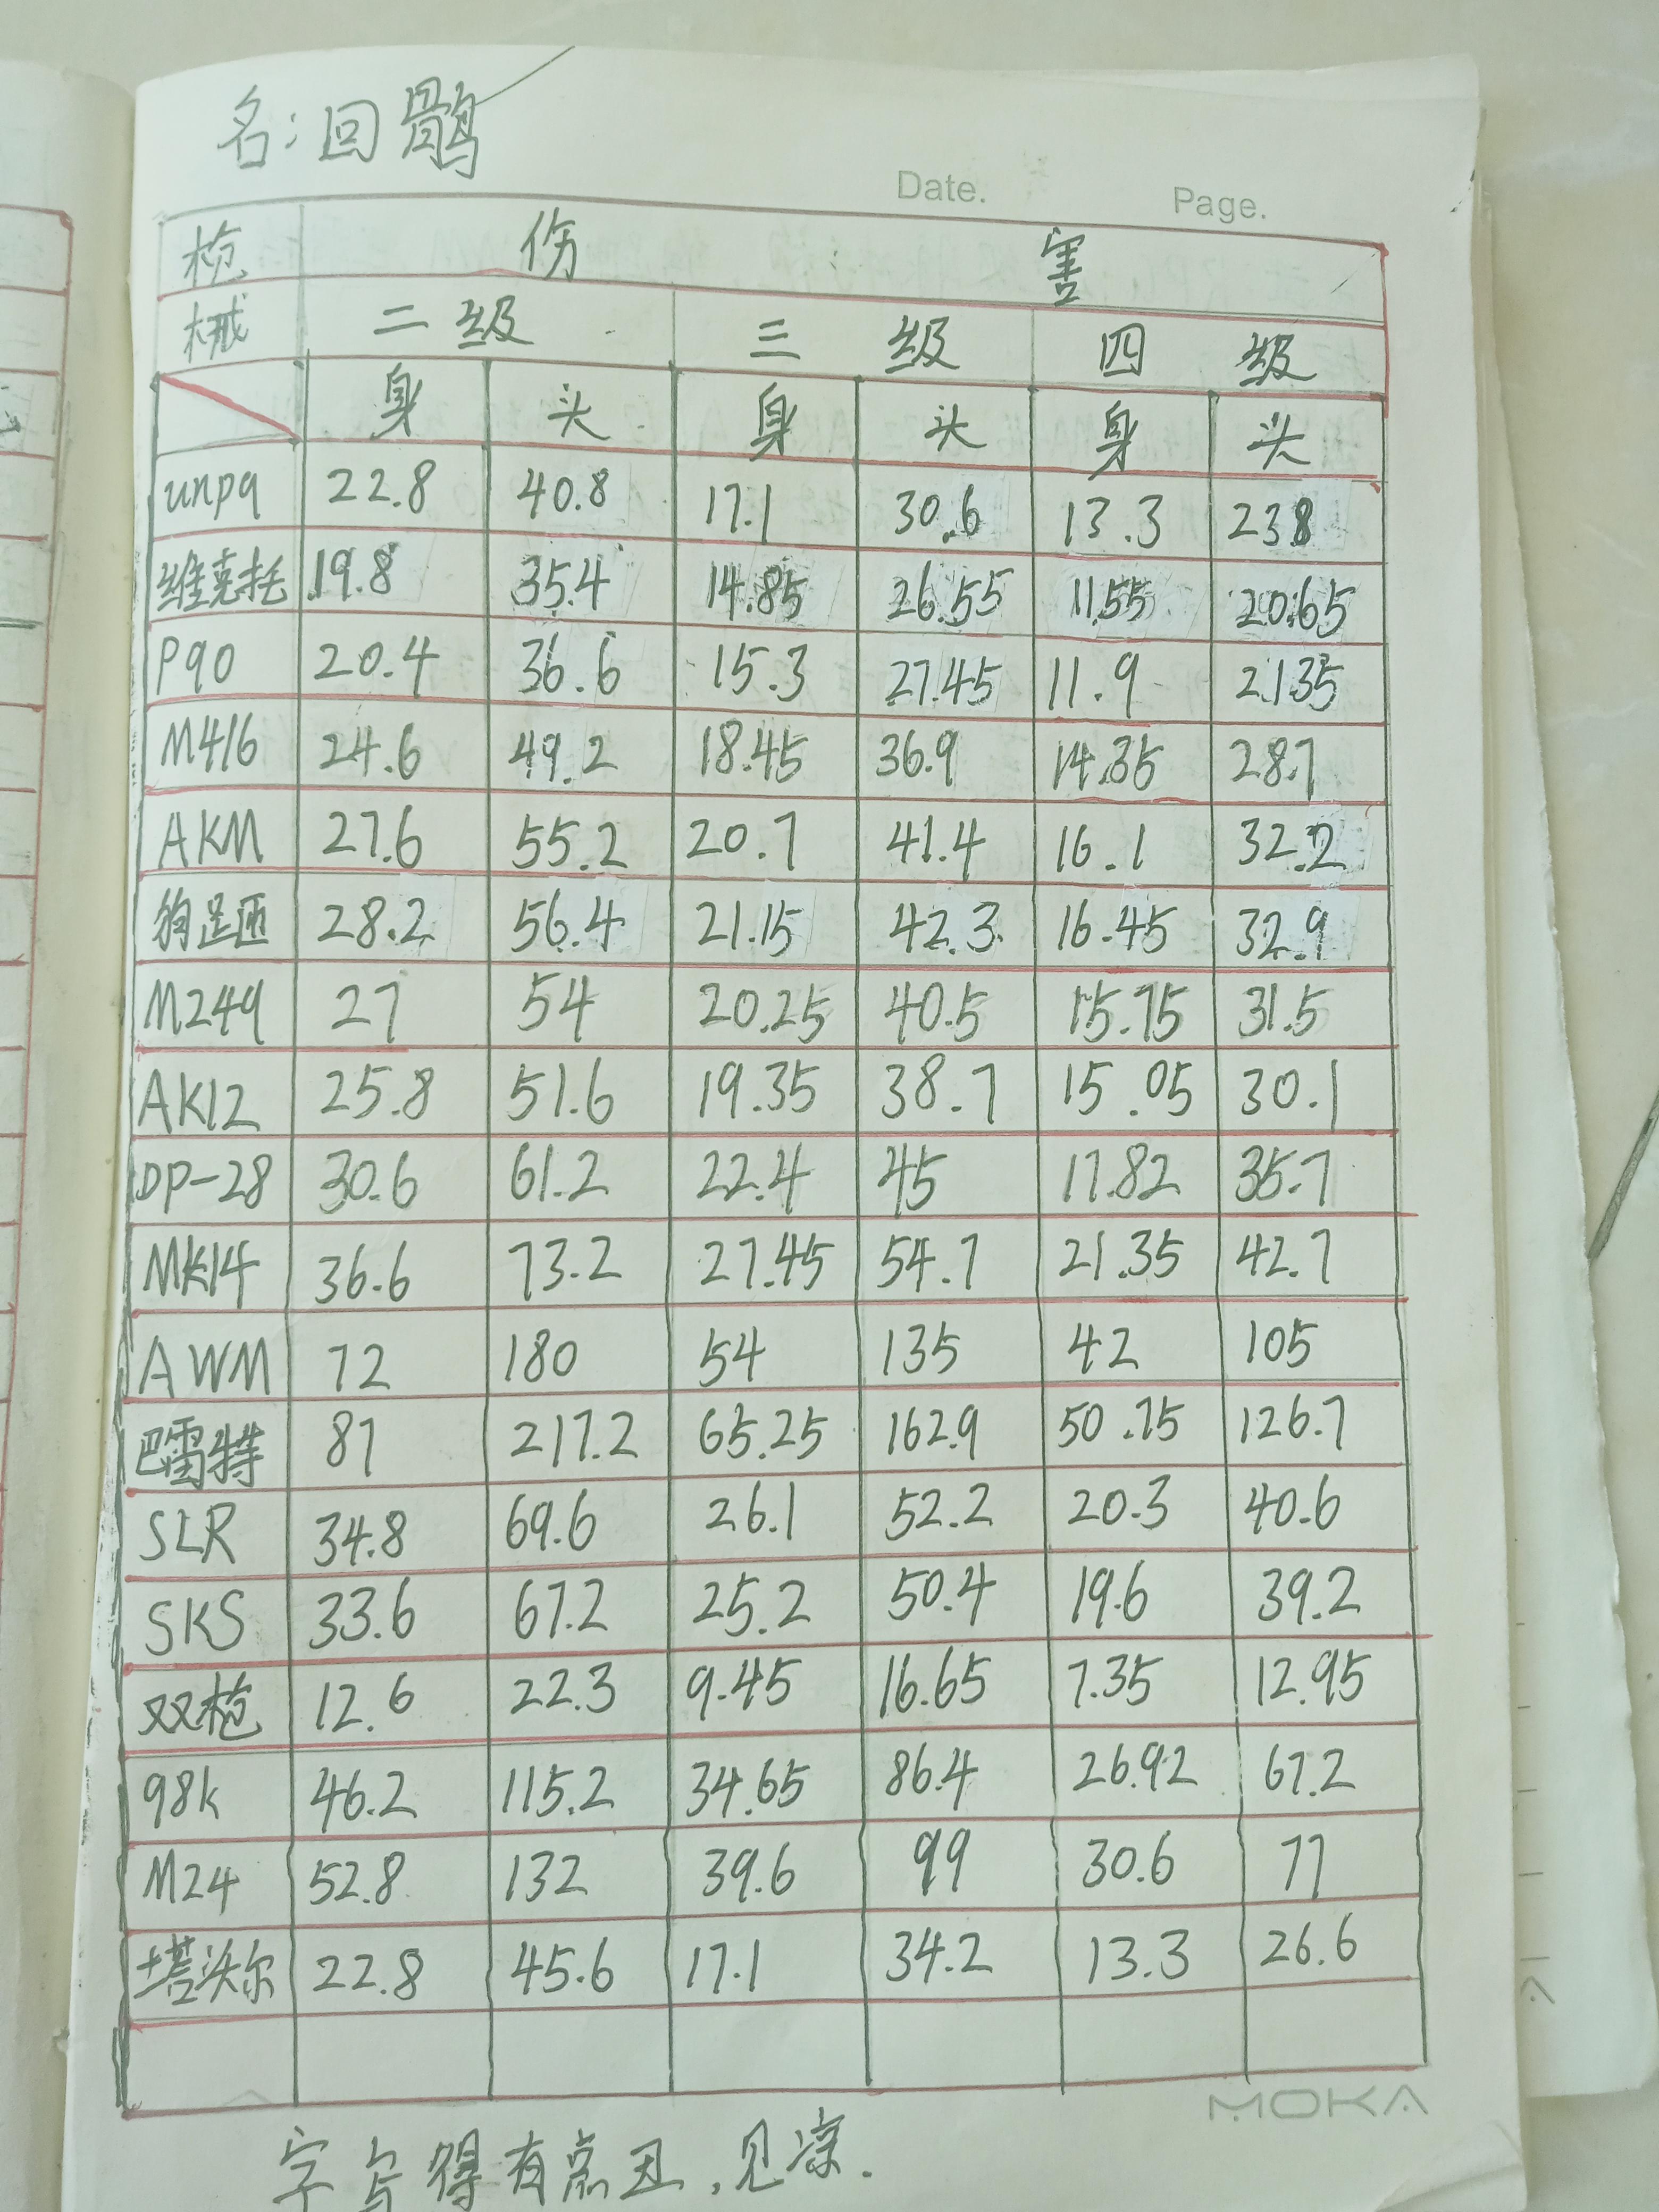 名:回鹘
Date. Page.
枪 伤 害
械 二级 三级 四级
身 头 身 头 身 头
unp9 22.8 40.8 17.1 30.6 13.3 238
维克托 19.8 35.4 14.85 26.55 11.55 20.65
P90 20.4 36.6 15.3 27.45 11.9 21.35
M416 24.6 49.2 18.45 36.9 14.35 28.7
AKM 27.6 55.2 20.7 41.4 16.1 32.2
狗是匝 28.2 56.4 21.15 42.3 16.45 32.9
M249 27 54 20.25 40.5 15.75 31.5
AK12 25.8 51.6 19.35 38.7 15.05 30.1
DP-28 30.6 61.2 22.4 45 17.82 35.7
MK14 36.6 73.2 27.45 54.7 21.35 42.7
AWM 72 180 54 135 42 105
巴雷特 87 217.2 65.25 162.9 50.75 126.7
SLR 34.8 69.6 26.1 52.2 20.3 40.6
SKS 33.6 67.2 25.2 50.4 19.6 39.2
双枪 12.6 22.3 9.45 16.65 7.35 12.95
98k 46.2 115.2 34.65 86.4 26.92 67.2
M24 52.8 132 39.6 99 30.6 77
塔沃尔 22.8 45.6 17.1 34.2 13.3 26.6
MOKA
字写得有点丑,见凉.